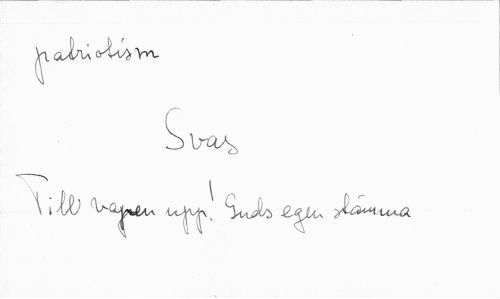 patriotism
Svas
Till vapen upp! Guds egen stämma